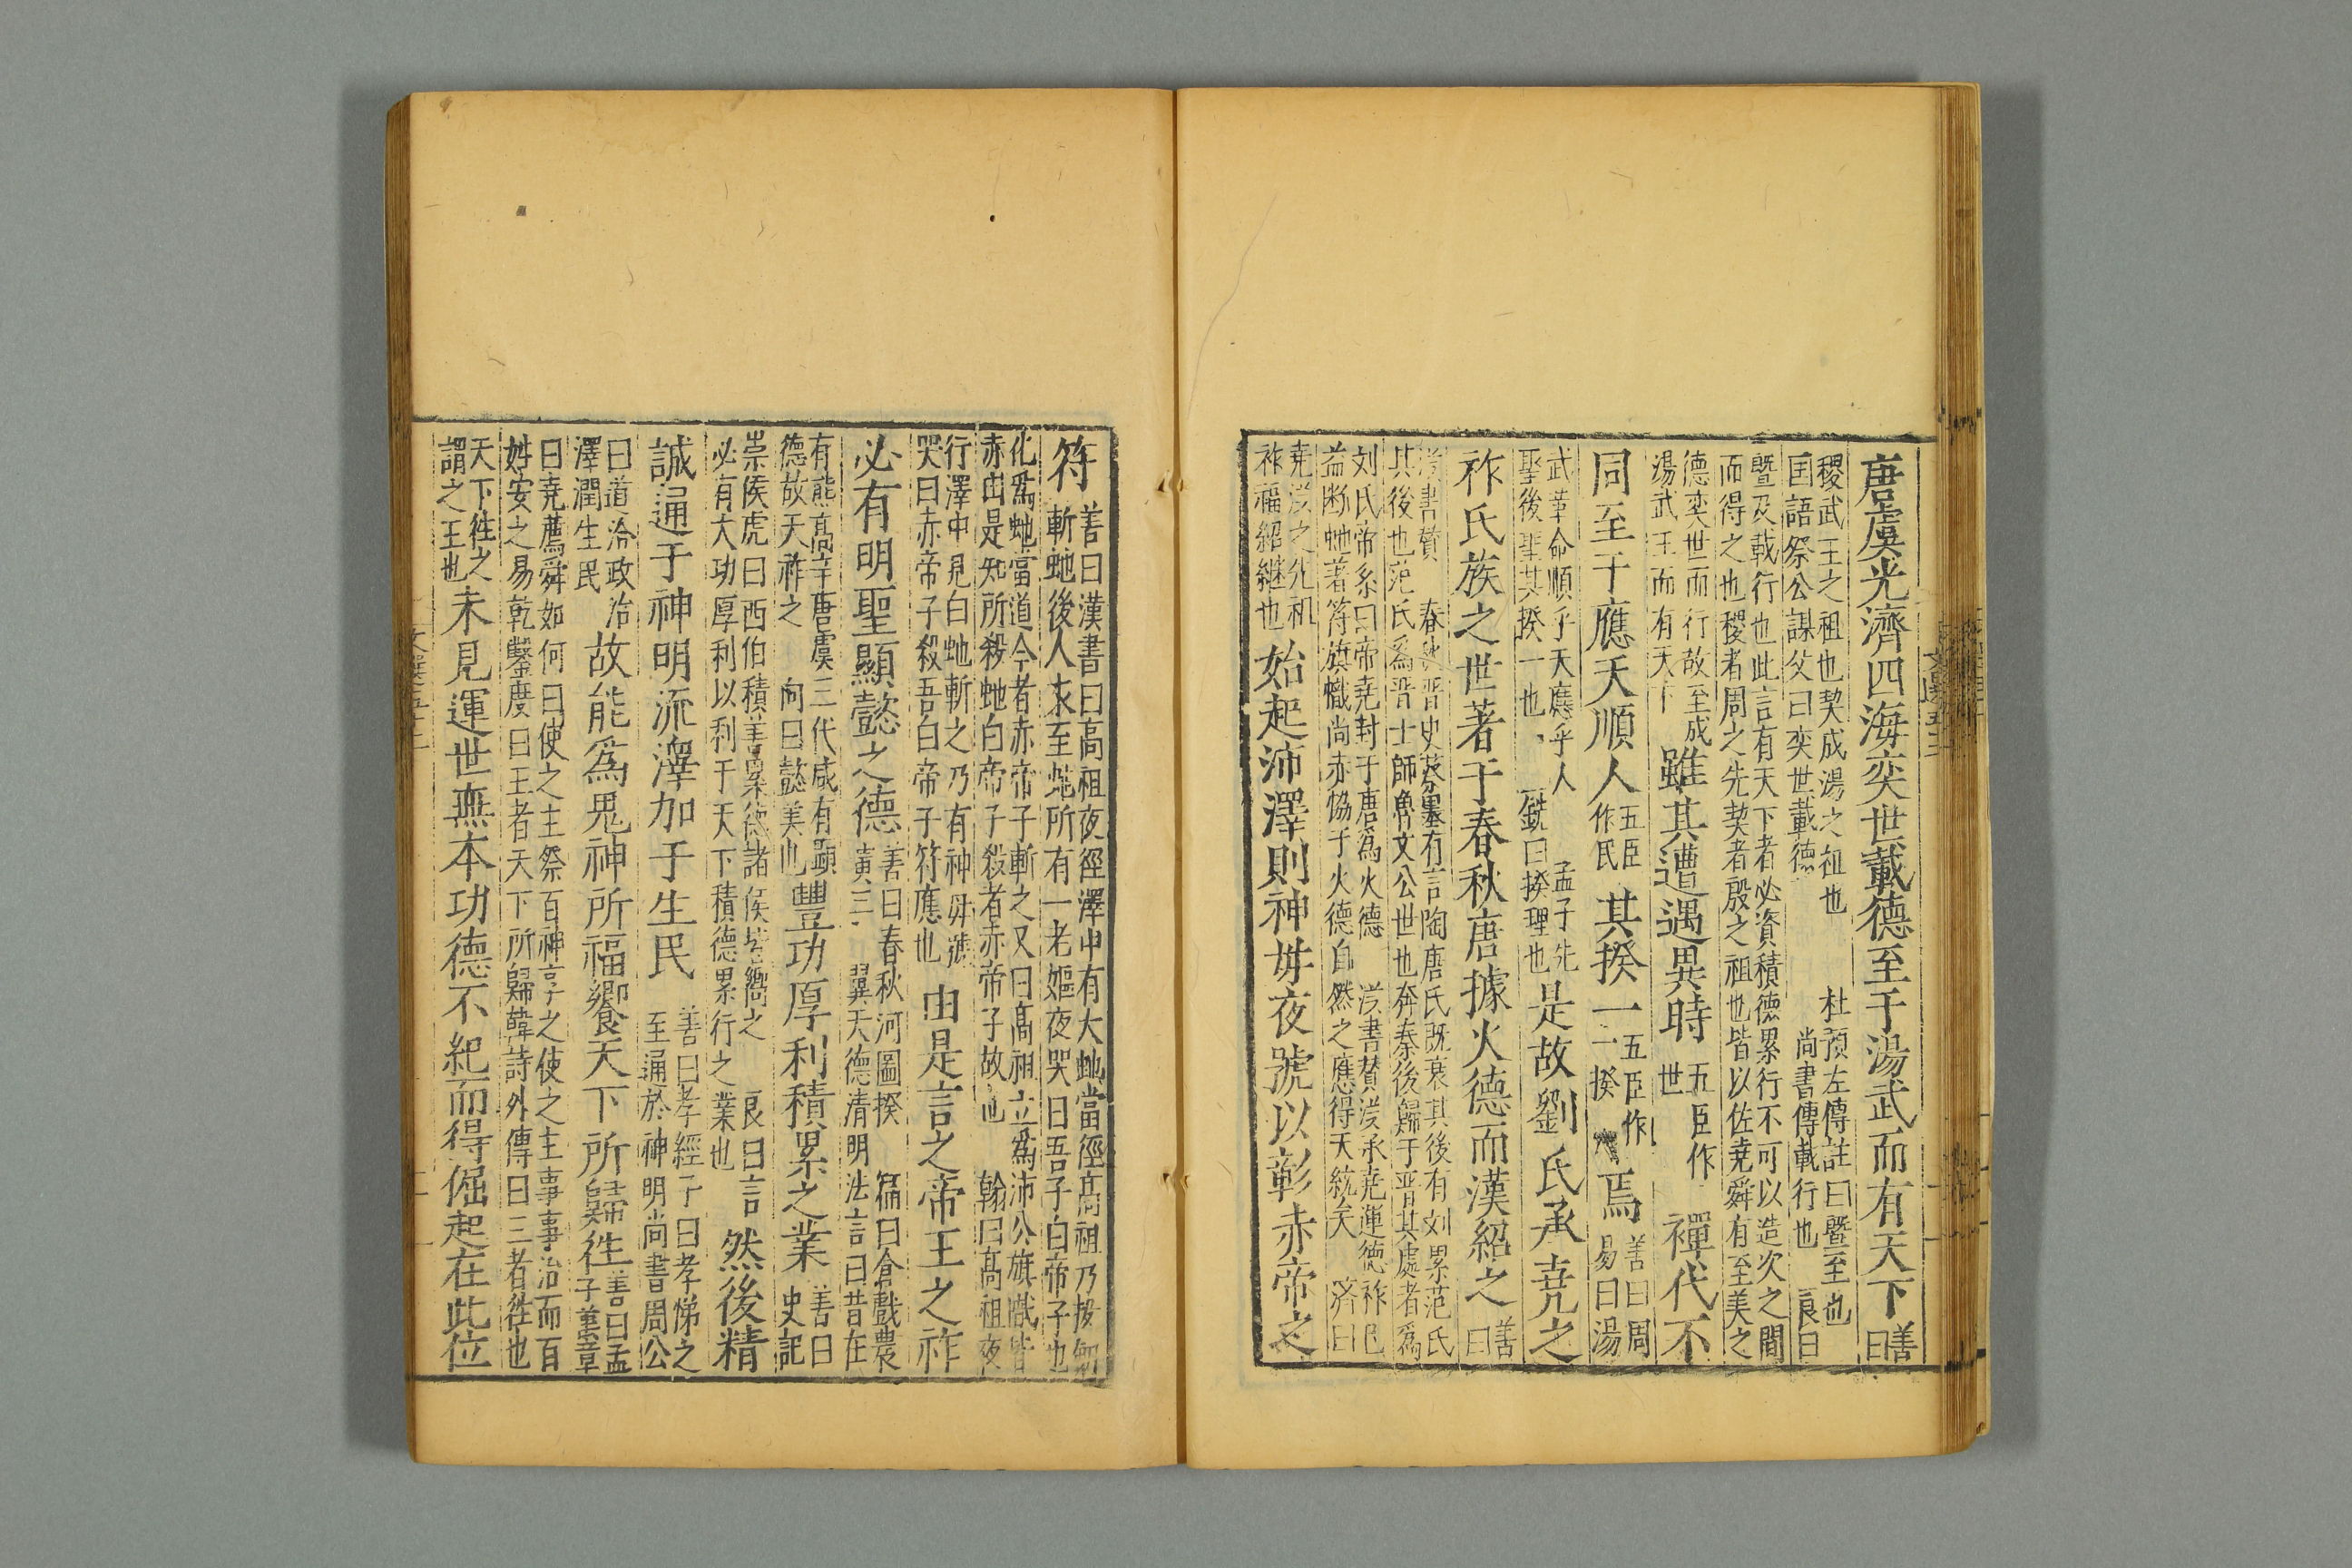 唐虞光濟四海奕世載德至于湯武而有天下善曰
稷武王之祖也契成湯之祖也 杜預左傳註曰曁至也
国語祭公謀父曰奕世載德 尚書傳載行也 良曰
曁及載行也此言有天下者必資積德累行不可以造次之間
而得之也稷者周之先契者殷之祖也皆以佐堯舜有至美之
德奕世而行故至成
湯武王而有天下
雖其遭遇異時五臣作世禪代不
同至于應天順人五臣作民其揆一五臣作一揆焉善曰周易曰湯
武革命順乎天應乎人 孟子先
聖後聖其揆一也 銑曰揆理也
是故劉氏承堯之
祚氏族之世著于春秋唐據火德而漢紹之善曰
漢書贊 春秋晋史蔡墨有言陶唐氏既衰其後有刘累范氏
其後也范氏爲晋士師魯文公世也奔秦後歸于晋其處者爲
刘氏帝系曰帝堯封于唐爲火德 漢書賛漢承堯運德祚已
益断虵著符旗幟尚赤恊于火德自然之應得天統矣 济曰
堯漢之先祖
祚福紹継也
始起沛澤則神毋夜號以彰赤帝之
符善曰漢書曰高祖夜徑澤中有大虵當徑高祖乃拔劒
斬虵後人來至虵所有一老嫗夜哭曰吾子白帝子也
化爲虵當道今者赤帝子斬之又曰高祖立爲沛公旗幟皆
赤由是知所殺虵白帝子殺者赤帝子故也 翰曰高祖夜
行澤中見白虵斬之乃有神毋號
哭曰赤帝子殺吾白帝子符應也
由是言之帝王之祚
必有明聖顯懿之德善曰春秋河圖揆 篇曰倉戲農
黄三 翼天德清明法言曰昔在
有熊高辛唐虞三代咸有顕
德故天祚之 向曰懿美也
豐功厚利積累之業善曰史記
崇侯虎曰西伯積善累德諸侯皆嚮之 良曰言
必有大功厚利以利于天下積德累行之業也
然後精
誠通于神明流澤加于生民善曰孝經子曰孝悌之
至通於神明尚書周公
曰道洽政治
澤潤生民
故能爲鬼神所福饗天下所歸徃善曰孟子萬章
曰堯薦舜如何曰使之主祭百神享之使之主事事治而百
姓安之易乾鑿度曰王者天下所歸韓詩外傳曰王者徃也
天下徃之
謂之王也
未見運世無本功德不紀而得倔起在此位